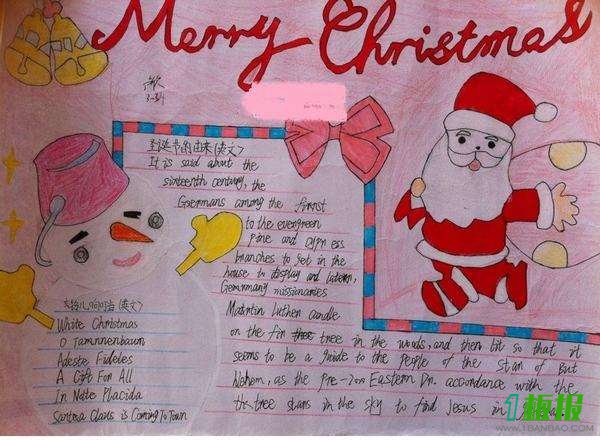 Merry Christmas
圣诞节的由来(英文)
It is said about the
sixteenth century, the
Goermans among the firnst
to the evergreen
Pine and cypr ess
branches to get in the
house in display and
Germmany missionaries
Martin Luther candle
on the fir tree in the woods, and then lit so that it
seems to be a guide to the people of the stan of But
as the Pre-
Eastern Dn. accordance with the
tree stars in the sky to find Jesus in
(英文)
White Christmas
O Tannnenbaum
Adeste Fideles
A Gift For All
In Notte Placida
Santosa Claus is Coming To Town
1板报
WWW.1BANBAO.COM